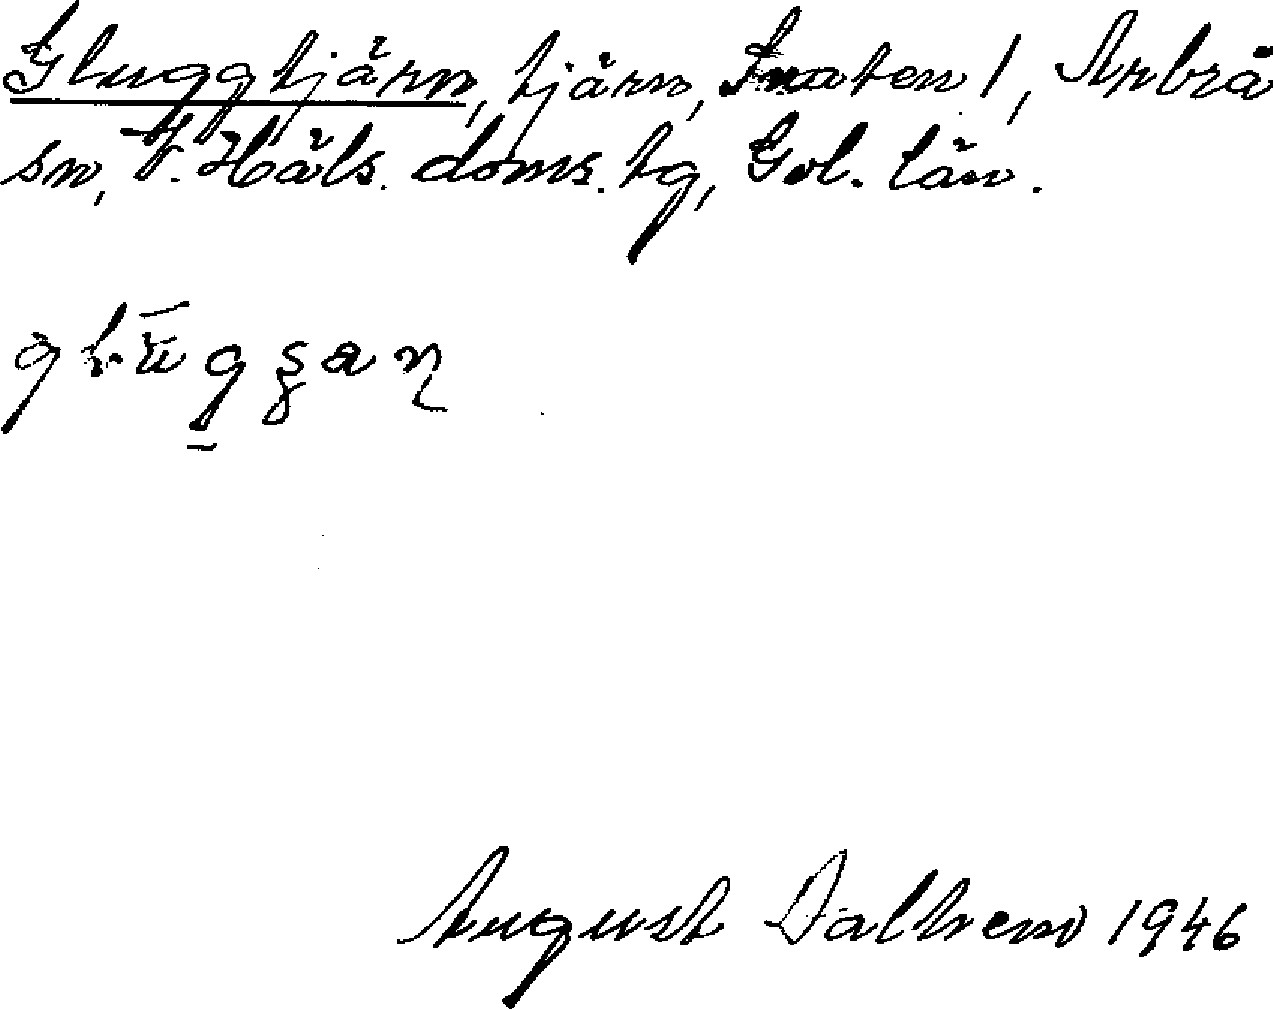 Gluggtjärn, tjärn, Snaten 1, Arbrå
sn, V. Häls. doms. tg, Gvl. län.
August Dalhem 1946